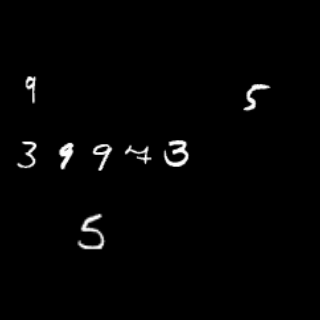 9 5
3 9 9 7 3
5